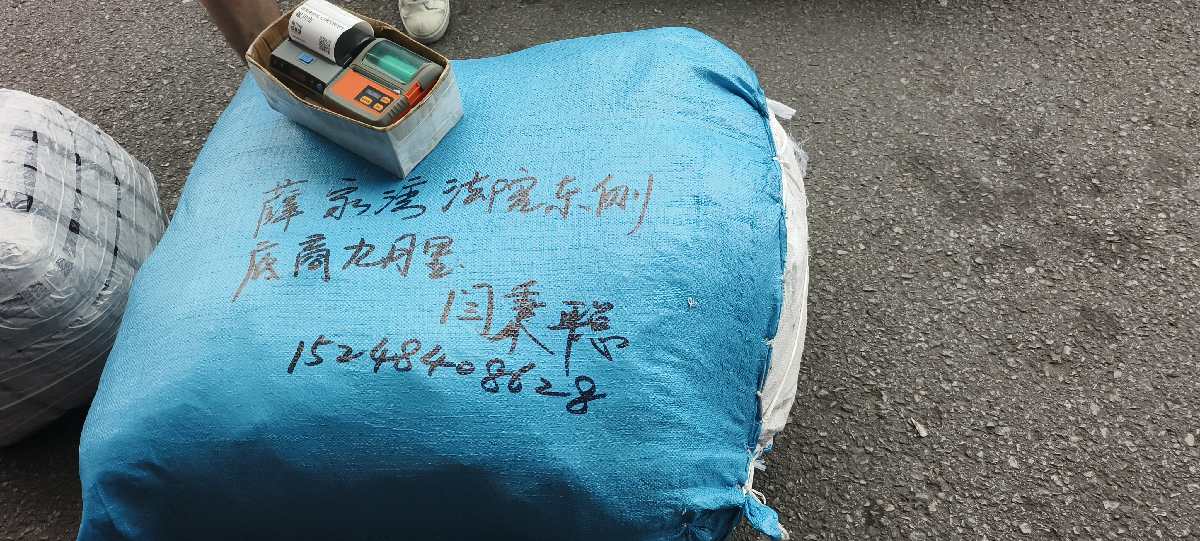 薛家湾法院东侧
底商九月里
闫秉聪
15248408628